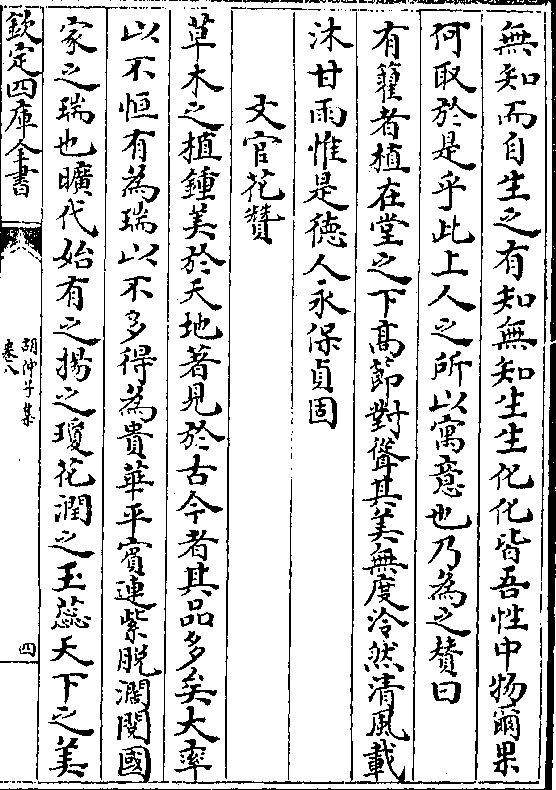 無知而自生之有知無知生生化化皆吾性中物爾果
何取於是乎此上人之所以寓意也乃為之賛曰
有籊者植在堂之下髙節對聳其美無度泠然清風載
沐甘雨惟是徳人永保貞固
文官花贊
草木之植鍾美於天地著見於古今者其品多矣大率
以不恒有為瑞以不多得為貴華平賔連紫脱濶閱國
家之瑞也曠代始有之揚之瓊花潤之玉蕊天下之美
欽定四庫全書
胡仲子集
卷八
四